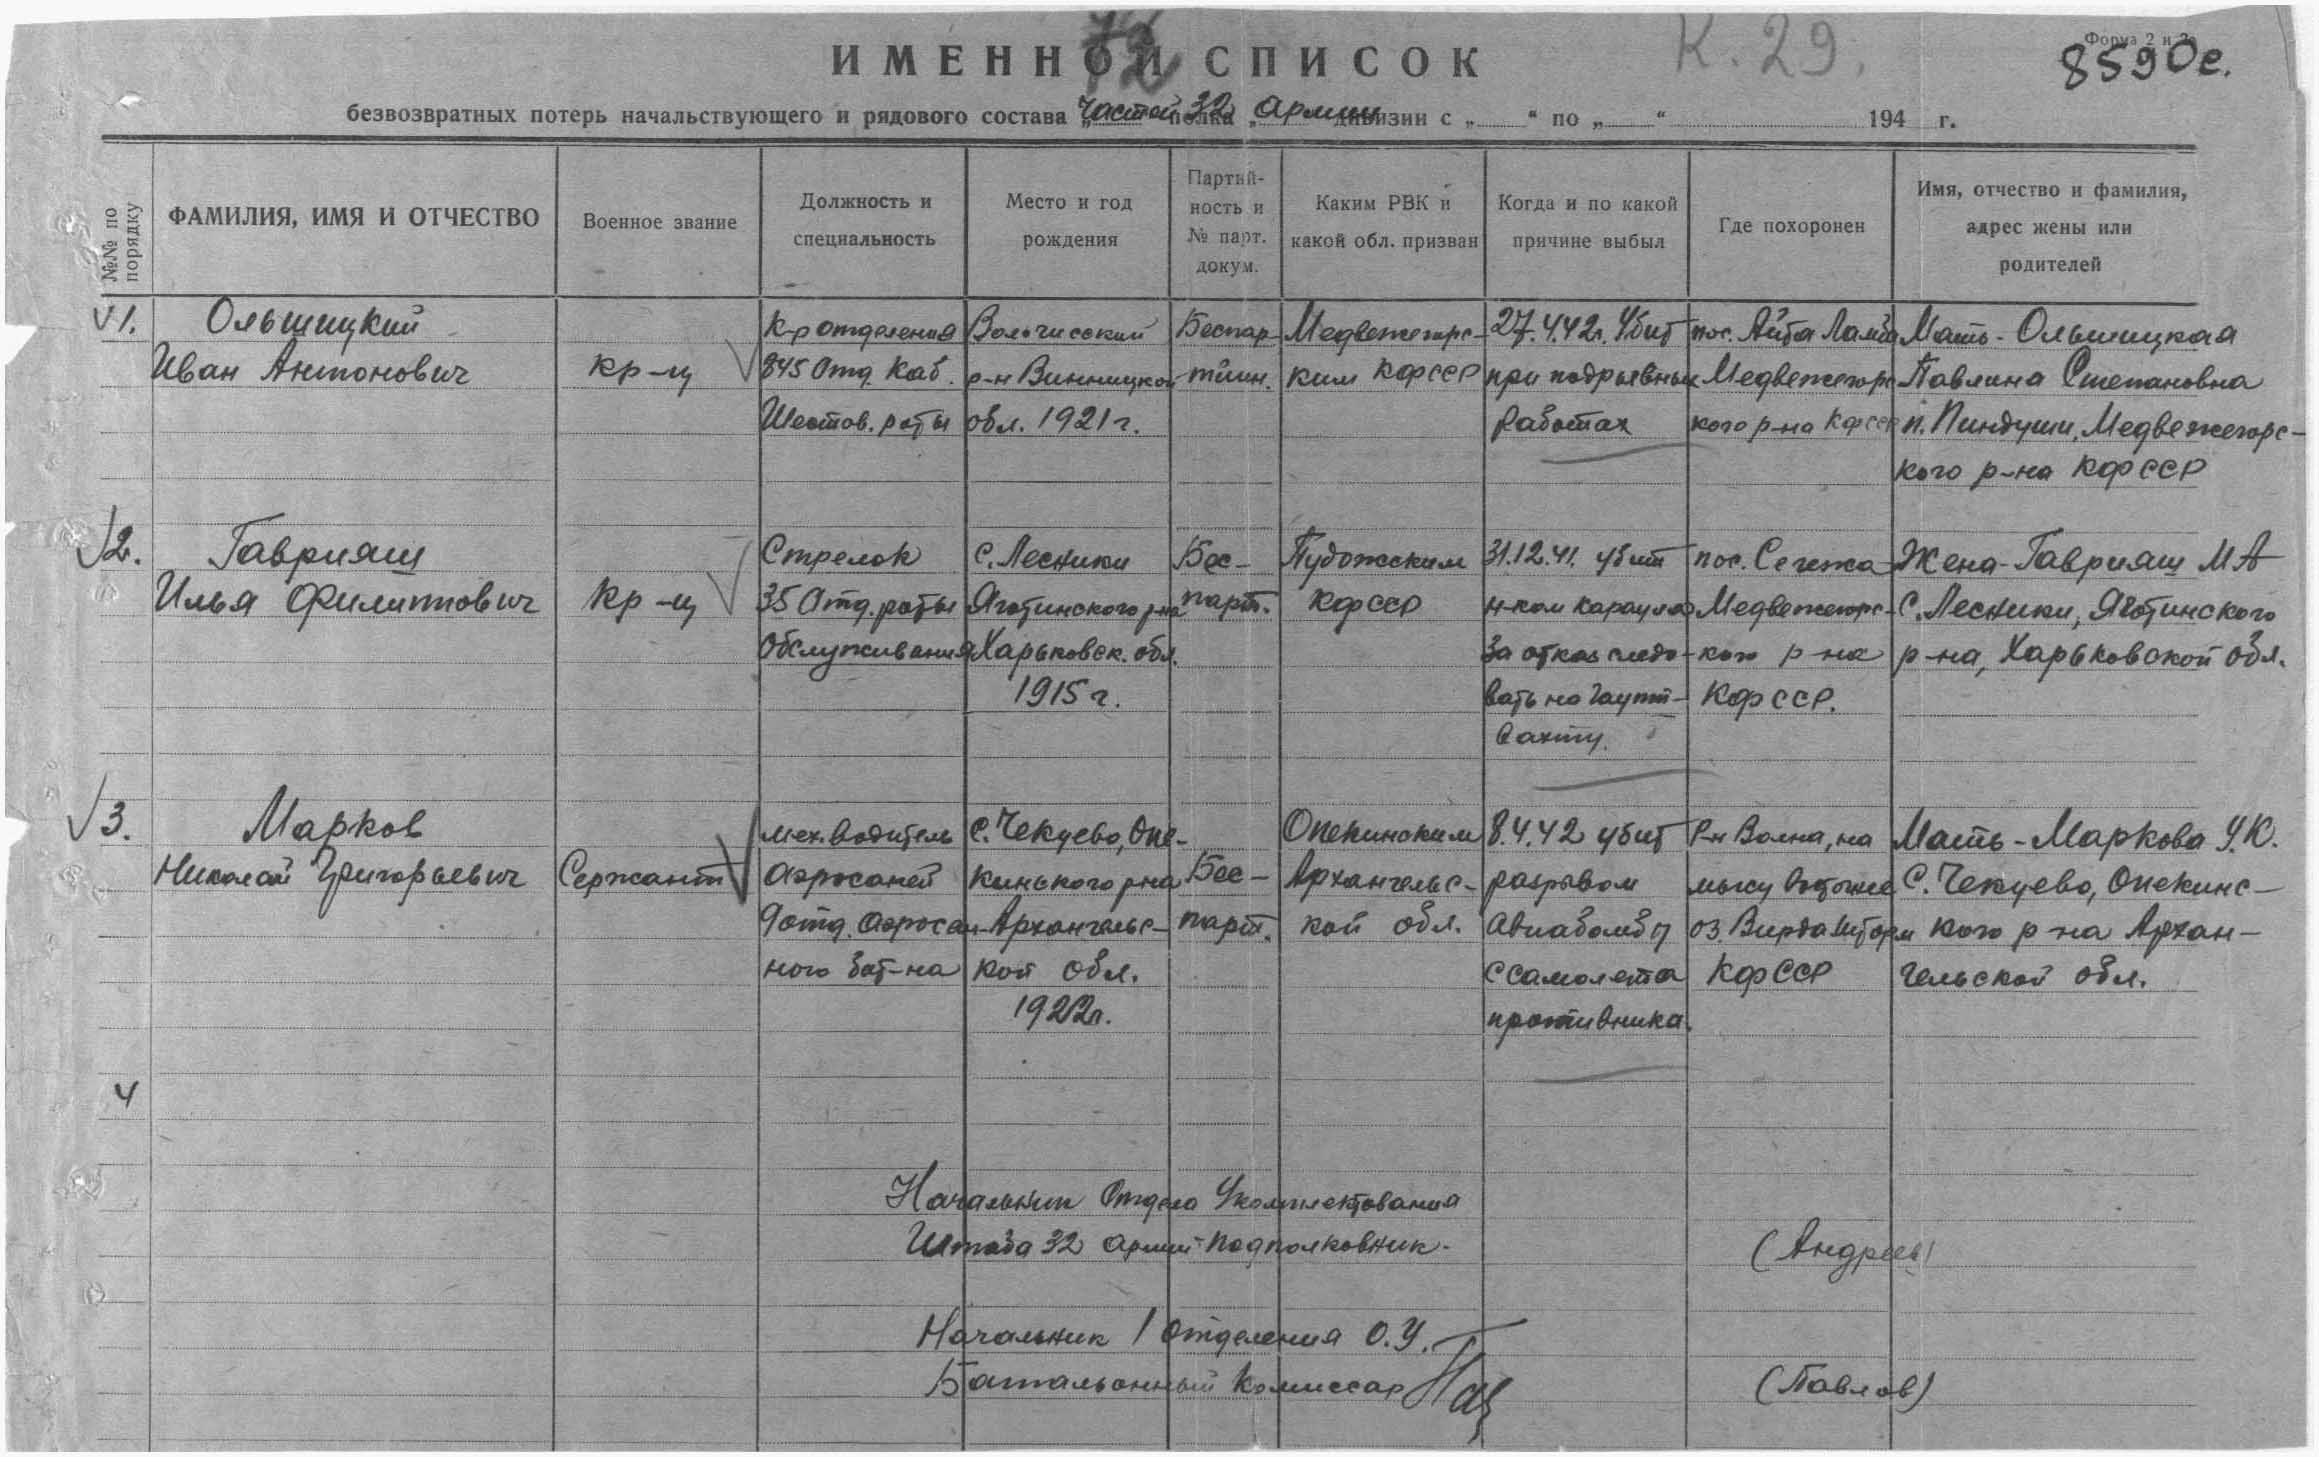 К. 29.
Форма 2 и 2а
8590с.
ИМЕННОЙ СПИСОК
безвозвратных потерь начальствующего и рядового состава частей полка 32 армии дивизии с „ “ по „ “ 194 г.
№№ по порядку
ФАМИЛИЯ, ИМЯ И ОТЧЕСТВО
Военное звание
Должность и
специальность
Место и год
рождения
Партий-
ность и
№ парт.
докум.
Каким РВК и
какой обл. призван
Когда и по какой
причине выбыл
Где похоронен
Имя, отчество и фамилия,
адрес жены или
родителей
1.
Ольшицкий
Иван Антонович
кр-ц
К-р отделения
845 Отд. Каб.
Шестов. роты
Волочисский
р-н Винницкой
обл. 1921 г.
Беспар-
тийн.
Медвежегорс-
ким КФССР
27.4.42г. Убит
при подрывных
работах
пос. Айта Ламба
Медвежегорс
кого р-на КФССР
Мать - Ольшицкая
Павлина Степановна
п. Пиндуши, Медвежегорс-
кого р-на КФССР
2.
Гаврияш
Илья Филиппович
кр-ц
Стрелок
35 Отд. роты
Обслуживания
с. Лесники
Яготинского р-на
Харьковск. обл.
1915 г.
Бес-
парт.
Пудожским
КФССР
31.12.41. убит
н-ком караула
за отказ следо-
вать на гаупт-
вахту.
пос. Сегежа
Медвежегорс-
кого р-на
КФССР.
Жена - Гаврияш М А
С. Лесники, Яготинского
р-на, Харьковской обл.
3.
Марков
Николай Григорьевич
Сержант
мех. водитель
аэросаней
9 отд. аэросан-
ного бат-на
с. Чекуево, Оне-
кинского р-на
Архангельс-
кой обл.
1922г.
Бес-
парт.
Онекинским
Архангельс-
кой обл.
8.4.42 убит
разрывом
авиабомбы
с самолета
противника.
Р-н Волна, на
мысу восточнее
оз.
КФССР
Мать - Маркова У.К.
С. Чекуево, Онекинс-
кого р-на Архан-
гельской обл.
4
Начальник Отдела Укомплектования
Штаба 32 армии подполковник.
(Андреев)
Начальник 1 отделения О.У.
Батальонный Комиссар
(Павлов)